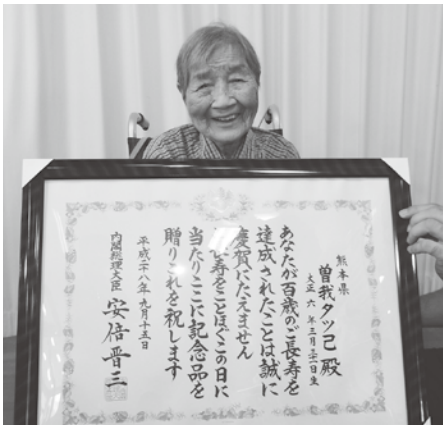 熊本県
曽我タツ己 殿
大正 六 年 三 月 三一日 生
あなたが百歳のご長寿を
達成されたことは誠に
慶賀にたえません
寿をことほぐこの日に
当たりここに記念品を
贈りこれを祝します
平成二十八年九月十五日
内閣総理大臣 安倍晋三